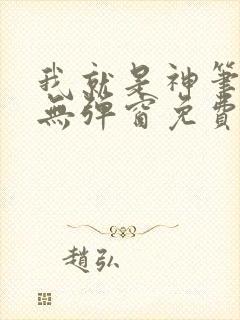 我就是神筆
無彈窗免費
趙弘